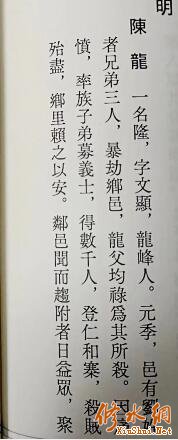 明
陳龍 一名隆，字文顯，龍峰人。元季，邑有
者兄弟三人，暴劫鄉邑，龍父均祿爲其所殺。
憤，率族子弟募義士，得數千人，登仁和寨，殺賊
殆盡，鄉里賴之以安。鄰邑聞而趨附者日益眾，聚
修水网
XiuShui.Net